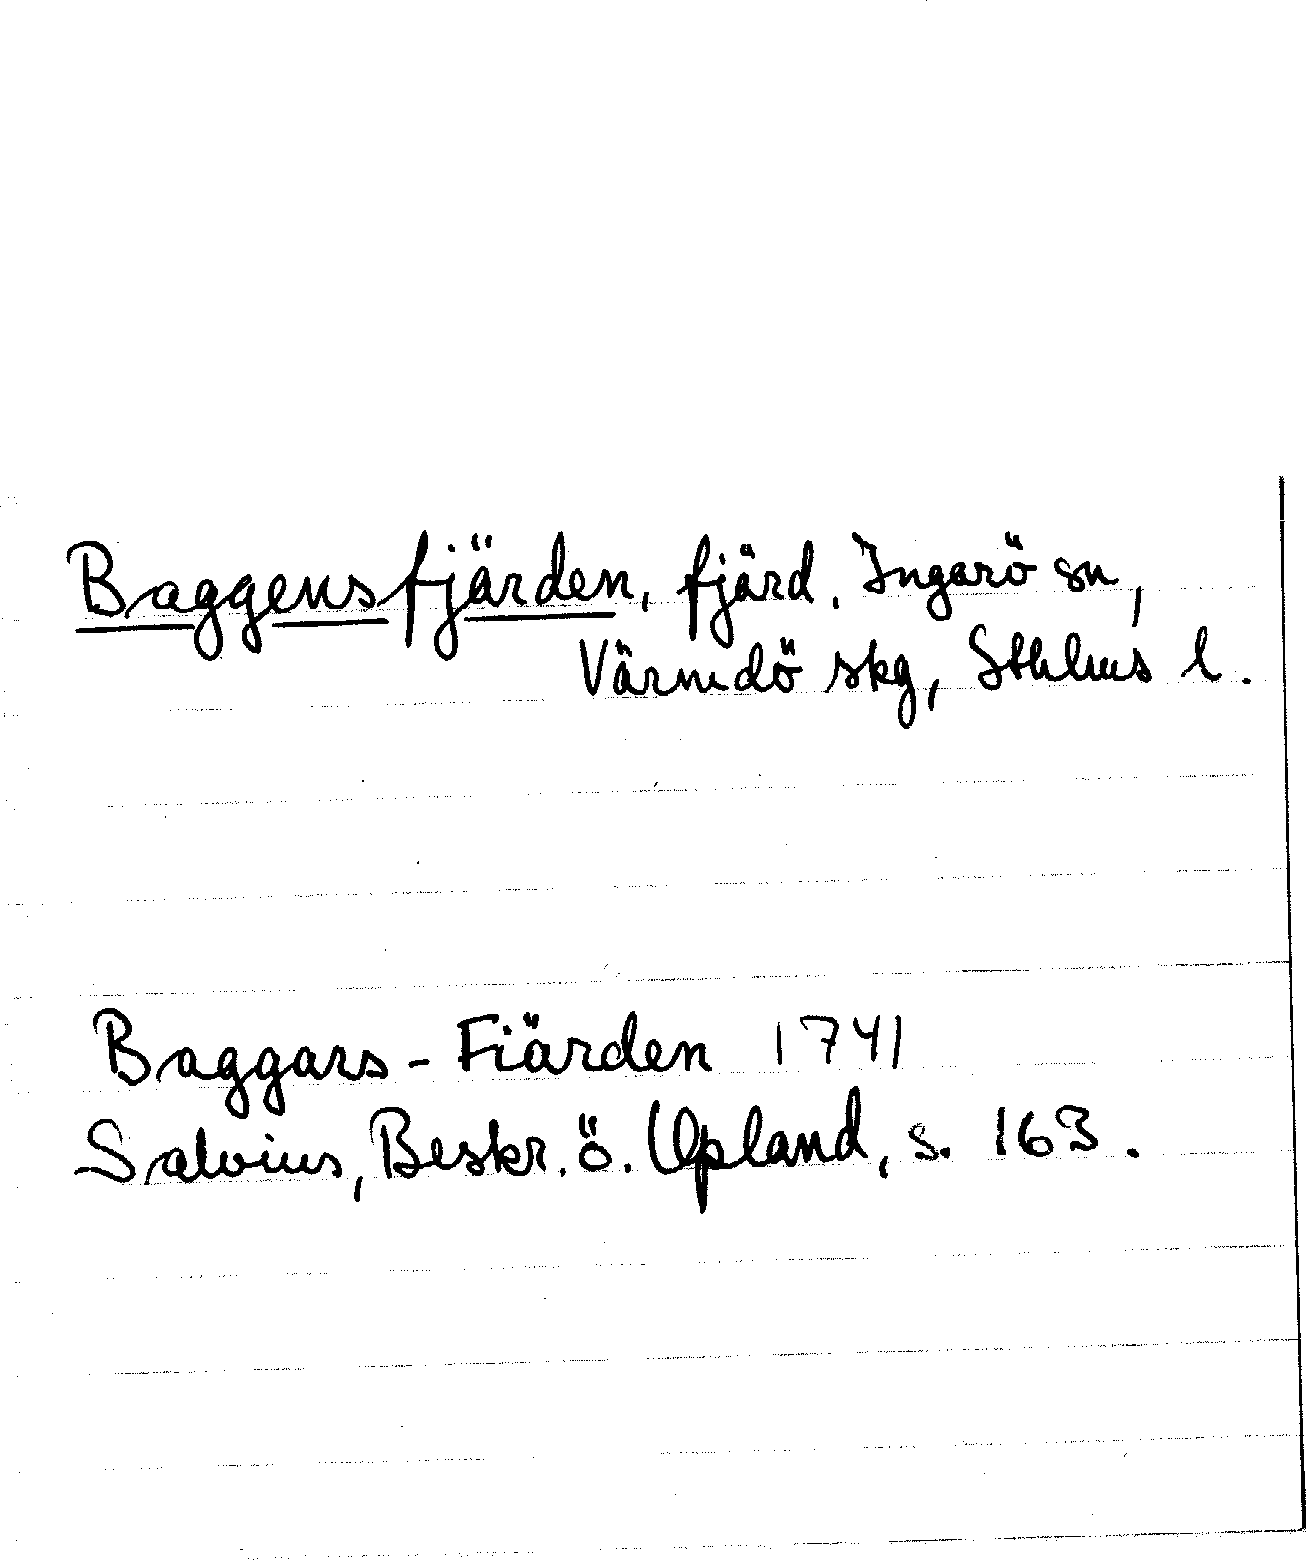 Baggensfjärden, fjärd, Ingarö sn,
Värmdö skg, Sthlms l.
Baggars-Fiärden 1741
Salvius, Beskr. ö. Upland, s. 163.